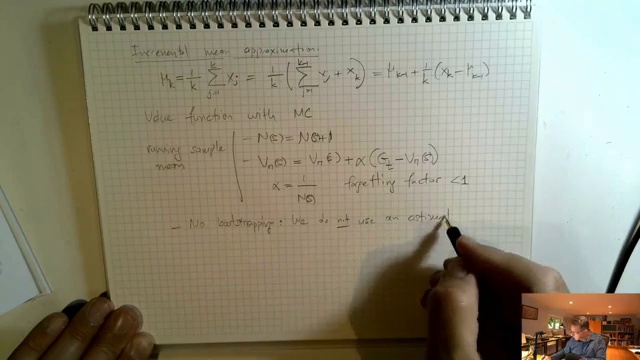 Incremental mean approximation:
μ_k = 1/k ∑_{j=1}^{k} x_j = 1/k ( ∑_{j=1}^{k-1} x_j + x_k ) = μ_{k-1} + 1/k (x_k - μ_{k-1})
Value function with MC
- N(s) = N(s)+1
running sample mean
- V_π(s) = V_π(s) + α (G_t - V_π(s))
α = 1/N(s) forgetting factor <1
- No bootstrapping: We do not use an estimat